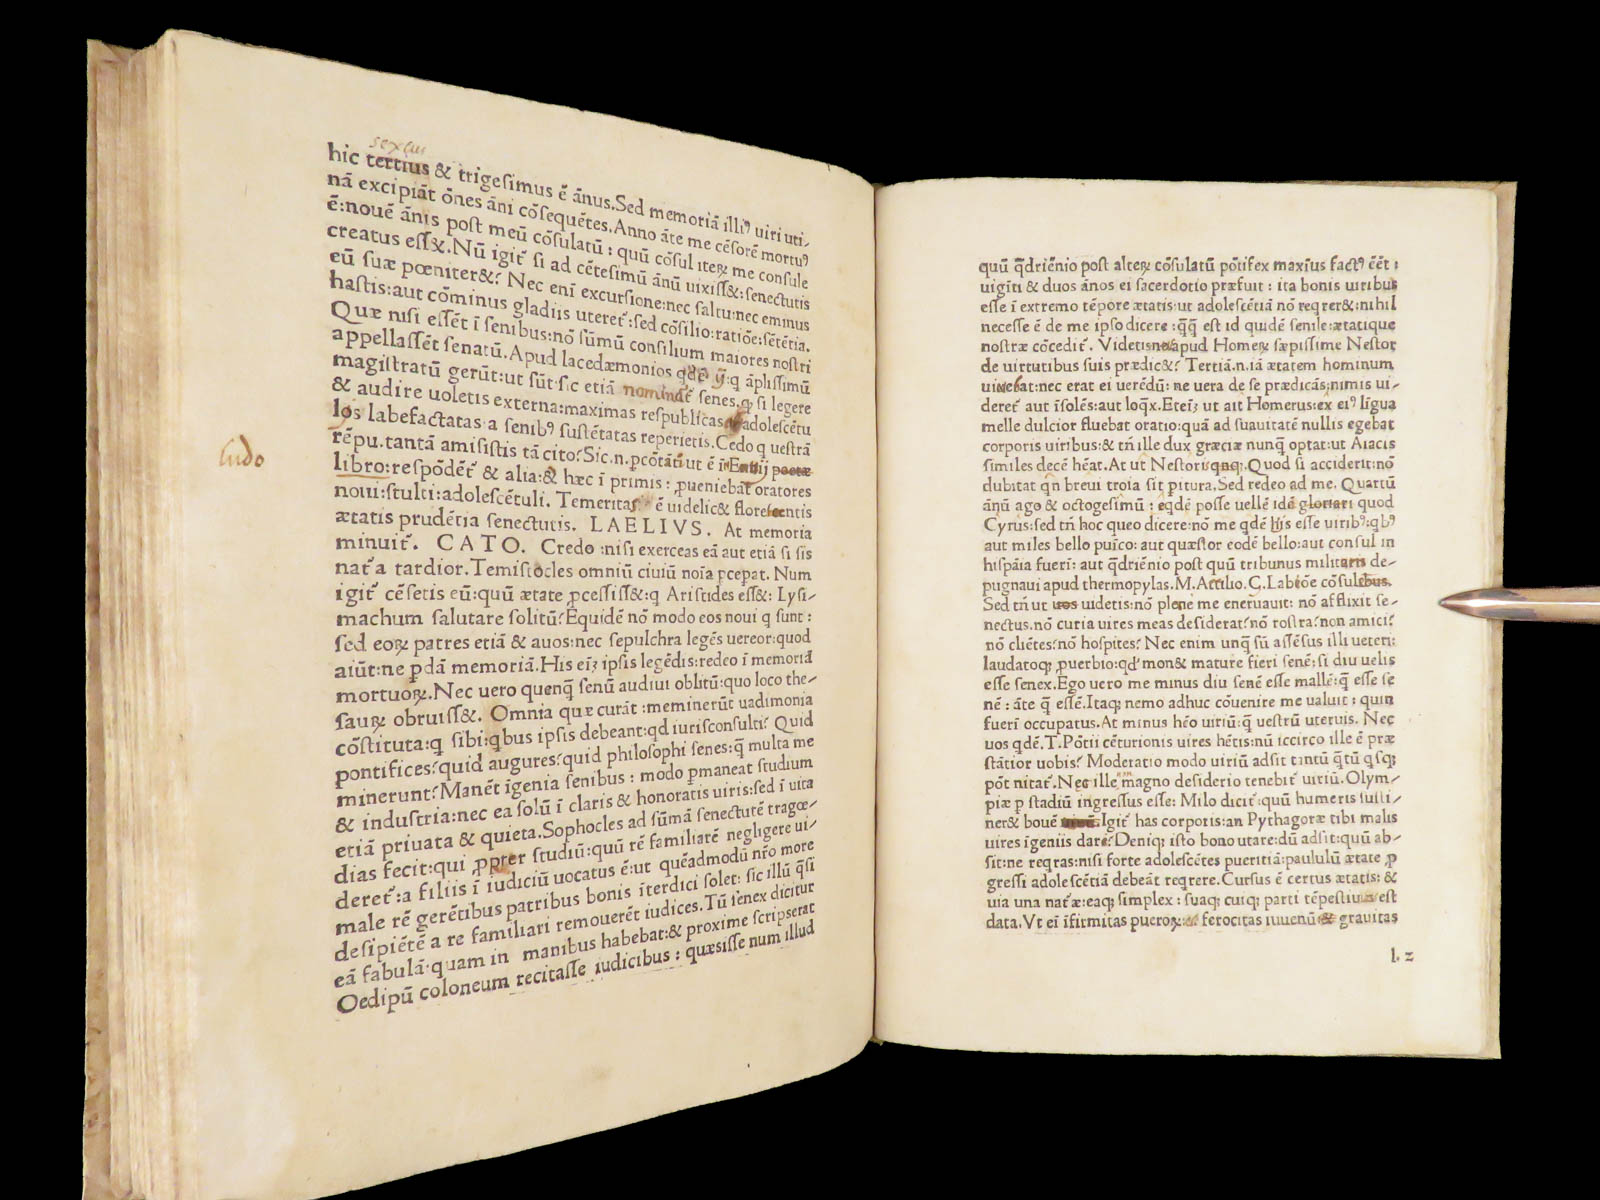 sextus
hic tertius & trigeſimus ē ānus.Sed memoriā illiꝰ uiri uti⸗
nā excipiāt ōnes āni cōſequētes.Anno āte me cēſorē mortuꝰ
ē:nouē ānis poſt meū cōſulatū : quū cōſul iteꝝ me conſule
creatus eſſ&.Nū igit̄ ſi ad cētesimū ānū uixiſſ&:ſenectutis
eū ſuæ pœniter&? Nec eni excurſione:nec ſaltu:nec eminus
haſtis:aut cōminus gladiis uteret̄:ſed cōſilio:ratiōe:ſētētia.
Quæ niſi eſſēt ī ſenibus:nō ſūmū conſilium maiores noſtri
appellaſſēt ſenatū.Apud lacedæmonios q̄:q āpliſſimū
magiſtratū gerūt:ut ſūt·ſic etiā nominat̄ ſenes.ꝙ ſi legere
& audire uoletis externa:maximas reſpublicas adoleſcētu
los labefactatas·a ſenibꝰ ſuſtētatas reperietis.Cedo q ueſtrā
ludo
rēpu.tantā amiſiſtis tā cito?Sic.n.ꝑcōtāti ut ē ī Ennij poetæ
libro:reſpōdēt̄ & alia:& hæc ī primis : ꝓueniebāt oratores
noui:ſtulti:adoleſcētuli. Temeritas ē uidelic& floreſcentis
ætatis prudētia ſenectutis. LAELIVS. At memoria
minuit̄. CATO. Credo :niſi exerceas eā aut etiā ſi ſis
nat̄a tardior.Temiſtocles omniū ciuiū noīa ꝑcepat. Num
igit̄ cēſetis eū:quū ætate ꝓceſſiſſ&:q Ariſtides eſſ&: Lyſi⸗
machum ſalutare ſolitū?Equidē nō modo eos noui q ſunt :
ſed eoꝝ patres etiā & auos:nec ſepulchra legēs uereor:quod
aiūt:ne ꝑdā memoriā.His eīꝫ ipſis legēdis:redeo ī memoriā
mortuoꝝ.Nec uero quenq̄ ſenū audiui oblitū:quo loco the⸗
ſauꝝ obruiſſ&. Omnia quæ curāt :meminerūt uadimonia
cōſtituta:q ſibi:qbus ipſis debeant:qd iuriſconſulti? Quid
pontifices?quid augures?quid philoſophi ſenes:q̄ multa me
minerunt? Manēt īgenia ſenibus : modo ꝑmaneat ſtudium
& induſtria:nec ea ſolū ī claris & honoratis uiris:ſed ī uita
etiā priuata & quieta.Sophocles ad ſūmā ſenectutē tragœ⸗
dias fecit:qui ꝓpter ſtudiū:quū rē familiarē negligere ui⸗
deret̄:a filiis ī iudiciū uocatus ē:ut quēadmodū nr̄o more
male rē gerētibus patribus bonis īterdici ſolet: ſic illū q̄ſi
deſipiētē a re familiari remouerēt iudices.Tū ſenex dicitur
eā fabulā·quam in manibus habebat:& proxime ſcripſerat
Oedipū coloneum recitaſſe iudicibus : quæſiſſe num illud
quū q̄driēnio poſt alteꝝ cōſulatū pōtifex maximus factꝰ ēēt :
uigīti & duos ānos ei ſacerdotio præfuit : ita bonis uiribus
eſſe ī extremo tēpore ætatis·ut adoleſcētiā nō reqrer&:nihil
neceſſe ē de me ipſo dicere :q̄q̄ eſt id quidē ſenile:ætatique
noſtræ cōcedit̄. Videtiſne apud Homeꝝ ſæpiſſime Neſtor
de uirtutibus ſuis prædic&? Tertiā.n.iā ætatem hominum
uiuebat:nec erat ei uerēdū: ne uera de ſe prædicās:nimis ui⸗
deret̄ aut īſolēs:aut loqx.Eteīꝫ ut ait Homerus:ex eiꝰ līgua
melle dulcior fluebat oratio:quā ad ſuauitatē nullis egebat
corporis uiribus:& tn̄ ille dux græciæ nunq̄ optat:ut Aiacis
ſimiles decē hēat.At ut Neſtoris Quod ſi acciderit:nō
dubitat qn̄ breui troia ſit ꝑitura.Sed redeo ad me. Quartū
ānū ago & octogeſimū : eqdē poſſe uellē idē gloriari quod
Cyrus:ſed tn̄ hoc queo dicere:nō me qdē hijs eſſe uiribꝰ:qbꝰ
aut miles bello puīco: aut quæſtor eodē bello:aut conſul in
hiſpāia fueri: aut q̄driēnio poſt quū tribunus militaris de⸗
pugnaui apud thermopylas.M.Attilio.Ç.Labiōe cōſulibus.
Sed tn̄ ut uos uidetis:nō plene me eneruauit: nō afflixit ſe⸗
nectus.nō curia uires meas deſiderat?nō roſtra?non amici?
nō cliētes?nō hoſpites? Nec enim unq̄ ſū aſſēſus illi ueteri:
laudatoqꝫ ꝓuerbio:qd' mon& mature fieri ſenē:ſi diu uelis
eſſe ſenex.Ego uero me minus diu ſenē eſſe mallē:q̄ eſſe ſe
nē : āte q̄ eſſē.Itaqꝫ nemo adhuc cōuenire me ualuit : quin
fueri occupatus.At minus hēo uiriū:q̄ ueſtrū uteruis. Nec
uos qdē.T.Pōtii cēturionis uires hētis:nū iccirco ille ē præ
ſtātior uobis? Moderatio modo uiriū adſit tātū q̄tū qſqꝫ
pōt nitat̄.Nec ille magno deſiderio tenebit̄ uiriū.Olym⸗
piæ ꝑ ſtadiū ingreſſus eſſe: Milo dicit̄ :quū humeris ſuſti⸗
ner& bouē uiuū.Igit̄ has corporis:an Pythagoræ tibi malis
uires igeniis dare? Deniqꝫ iſto bono utare:dū adſit:quū ab⸗
ſit:ne reqras:niſi forte adoleſcētes pueritiā:paululū ætate ꝓ
greſſi adoleſcētiā debeāt reqrere.Curſus ē certus ætatis: &
uia una nat̄æ:eaqꝫ ſimplex : ſuaqꝫ cuiqꝫ parti tēpeſtiuitas eſt
data.Vt ei īfirmitas pueroꝝ: ferocitas iuuenū:& grauitas
l.2